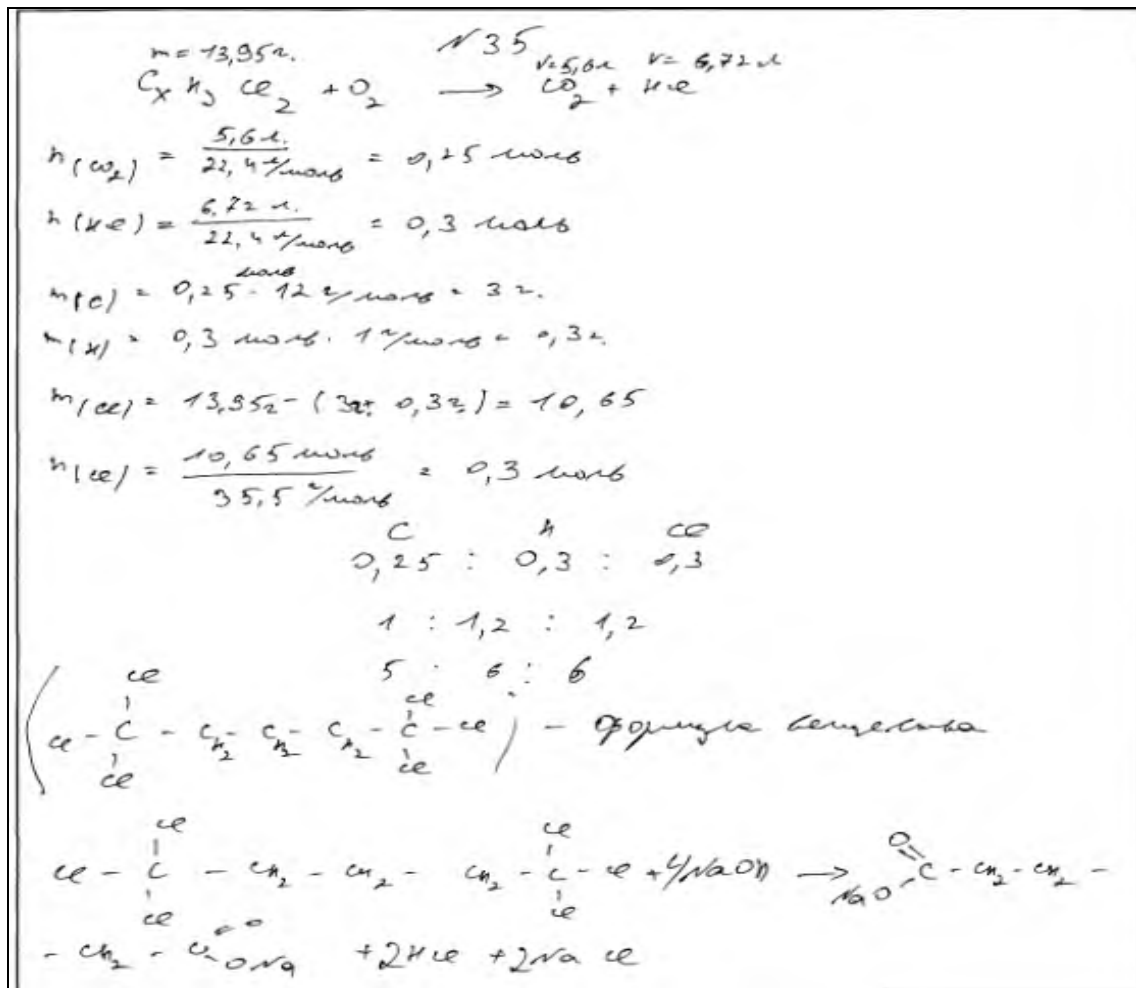 N 35
m = 13,95г. V=5,6л V= 6,72л
CxHyClz + O2 → CO2 + HCl
n(CO2) = 5,6 л. / 22,4 л/моль = 0,25 моль
n(HCl) = 6,72 л. / 22,4 л/моль = 0,3 моль
m(C) = 0,25 моль · 12 г/моль = 3 г.
m(H) = 0,3 моль · 1 г/моль = 0,3г.
m(Cl) = 13,95г - (3г+ 0,3г) = 10,65
n(Cl) = 10,65 моль / 35,5 г/моль = 0,3 моль
C H Cl
0,25 : 0,3 : 0,3
1 : 1,2 : 1,2
5 : 6 : 6
Cl Cl
(Cl - C - CH2 - CH2 - CH2 - C - Cl) - формула вещества
Cl Cl
Cl Cl O
Cl - C - CH2 - CH2 - CH2 - C - Cl + 4NaOH → NaO C - CH2 - CH2 -
Cl Cl
- CH2 - C O ONa + 2HCl + 2NaCl